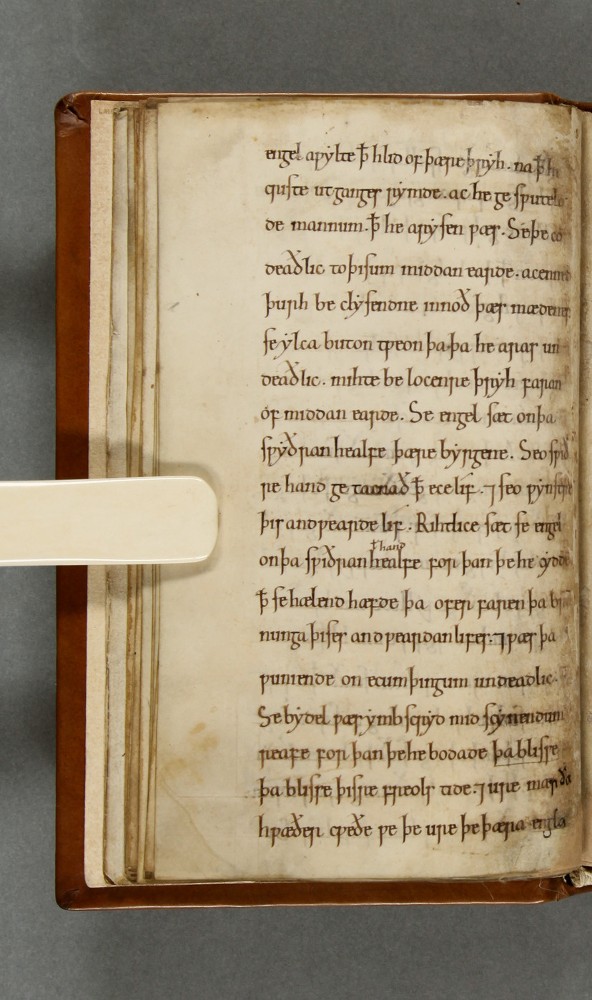 engel aƿẏlte ꝥ hlid of þære þrẏh. na ꝥ he
criste utganges rẏmde. ac he ge sƿutelo
de mannum. ꝥ he arẏsen ƿæs. Se þe co
deaðlic to þisum middan earde. acenned
þurh be clẏsendne innoð þæs mædenes
se ẏlca buton tƿeon þa þa he aras un
deaðlic. mihte be locenre þrẏh faran
of middan earde. Se engel sæt on þa
sƿẏðran healfe þære bẏrgene. Seo sƿið
re hand ge tacnað ꝥ ece lif. ⁊ seo ƿẏnstre
þis andƿearde lif. Rihtlice sæt se engel
on þa sƿiðran healfe ł hand for þan þe he cẏdde
ꝥ se hælend hæfde þa ofer faren þa br
nunga þises andƿeardan lifes. ⁊ ƿæs þa
ƿuniende on ecum þingum undeadlic.
Se bẏdel ƿæs ẏmb scrẏd mid scẏnendum
reafe for þan þe he bodade þa blisse
þa blisse þissre freols tide. ⁊ ure mærða
hƿæðer cƿeðe ƿe þe ure þe þæra engla